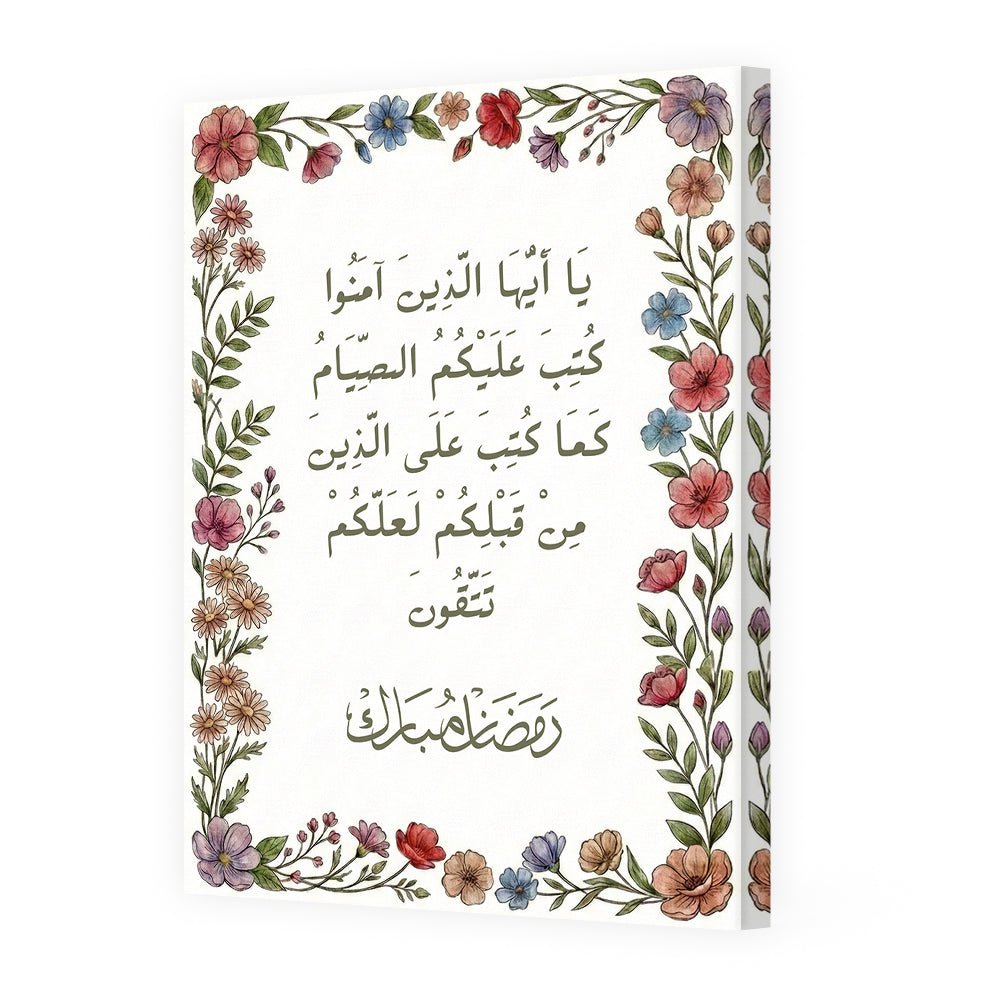 يَا أَيُّهَا الَّذِينَ آمَنُوا
كُتِبَ عَلَيْكُمُ الصِّيَامُ
كَمَا كُتِبَ عَلَى الَّذِينَ
مِنْ قَبْلِكُمْ لَعَلَّكُمْ
تَتَّقُونَ
رَمَضَان مُبَارَك